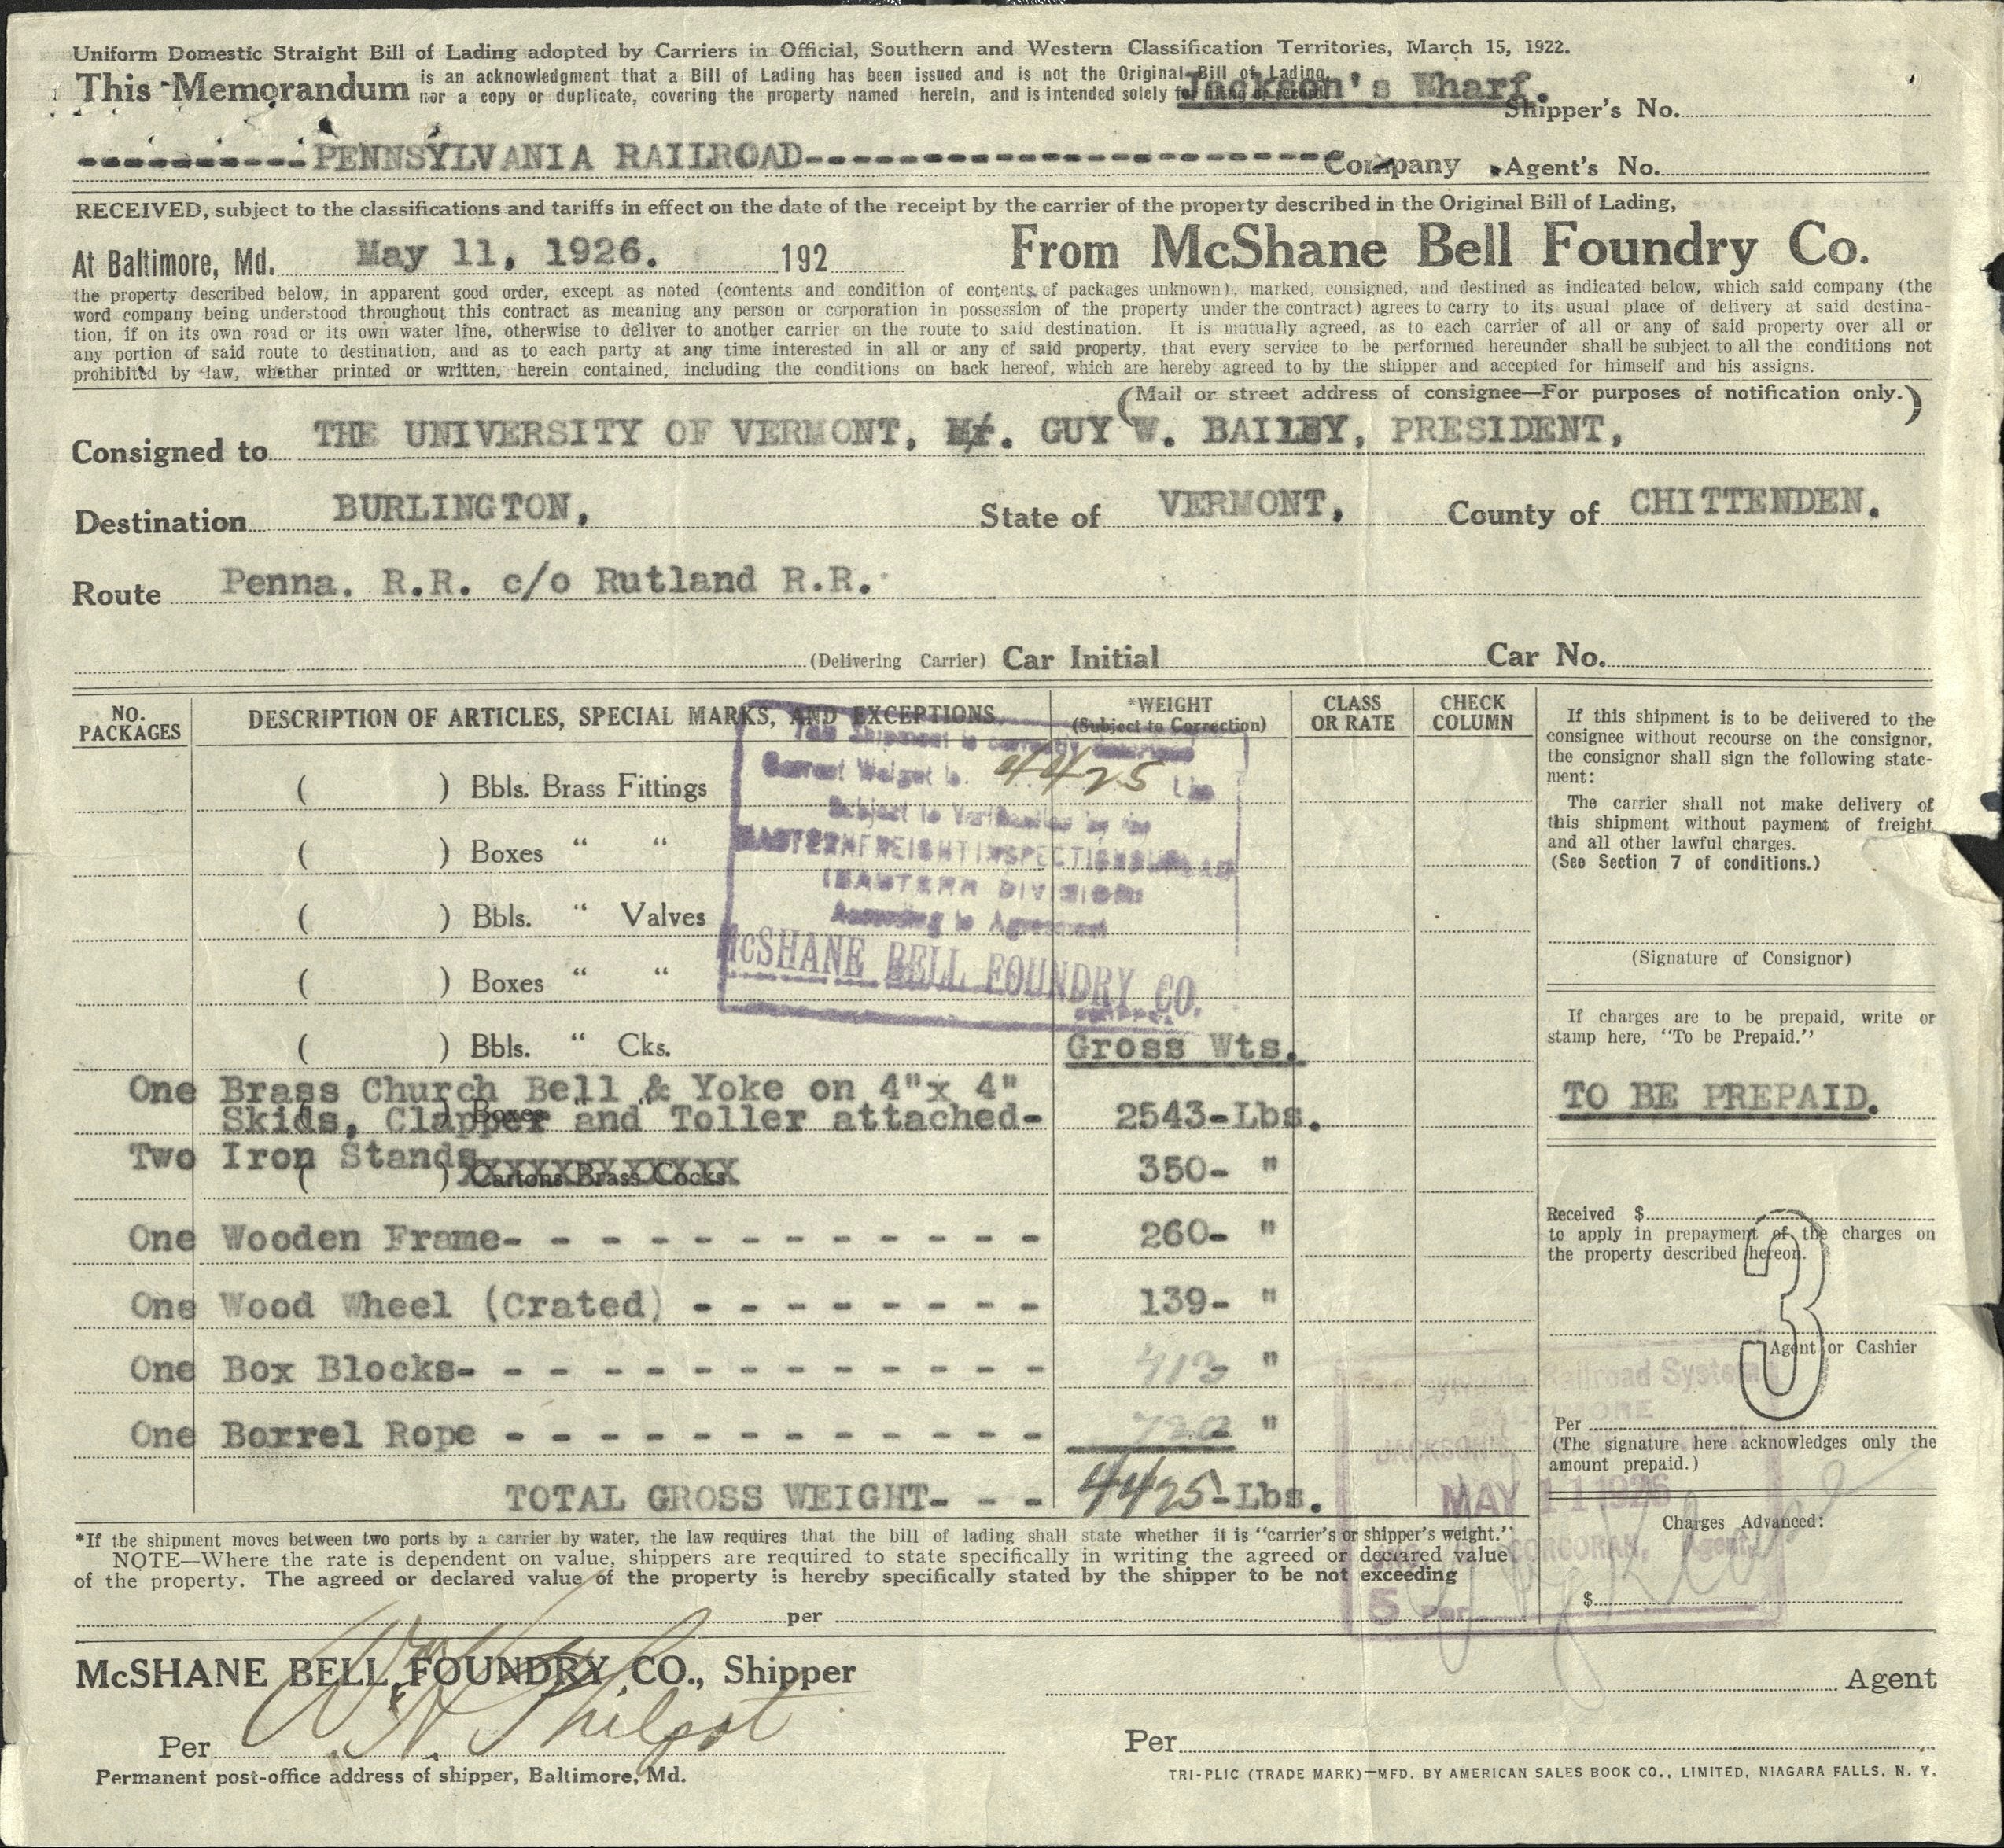 Uniform Domestic Straight Bill of Lading adopted by Carriers in Official, Southern and Western Classification Territories, March 15, 1922.
This Memorandum is an acknowledgment that a Bill of Lading has been issued and is not the Original Bill of Lading,
nor a copy or duplicate, covering the property named herein, and is intended solely for filing or record.
Jackson's Wharf.
Shipper's No.
PENNSYLVANIA RAILROAD Company Agent's No.
RECEIVED, subject to the classifications and tariffs in effect on the date of the receipt by the carrier of the property described in the Original Bill of Lading,
At Baltimore, Md. May 11, 1926. 192 From McShane Bell Foundry Co.
the property described below, in apparent good order, except as noted (contents and condition of contents of packages unknown), marked, consigned, and destined as indicated below, which said company (the
word company being understood throughout this contract as meaning any person or corporation in possession of the property under the contract) agrees to carry to its usual place of delivery at said destina-
tion, if on its own road or its own water line, otherwise to deliver to another carrier on the route to said destination. It is mutually agreed, as to each carrier of all or any of said property over all or
any portion of said route to destination, and as to each party at any time interested in all or any of said property, that every service to be performed hereunder shall be subject to all the conditions not
prohibited by law, whether printed or written, herein contained, including the conditions on back hereof, which are hereby agreed to by the shipper and accepted for himself and his assigns.
(Mail or street address of consignee—For purposes of notification only.)
Consigned to THE UNIVERSITY OF VERMONT, Mr. GUY W. BAILEY, PRESIDENT,
Destination BURLINGTON, State of VERMONT, County of CHITTENDEN.
Route Penna. R.R. c/o Rutland R.R.
(Delivering Carrier) Car Initial Car No.
NO. PACKAGES DESCRIPTION OF ARTICLES, SPECIAL MARKS, AND EXCEPTIONS. *WEIGHT (Subject to Correction) CLASS OR RATE CHECK COLUMN
This Shipment is correctly described
Correct Weight is 4425 Lbs
Subject to Verification by the
EASTERN FREIGHT INSPECTION BUREAU
(EASTERN DIVISION)
According to Agreement
McSHANE BELL FOUNDRY CO.
( ) Bbls. Brass Fittings
( ) Boxes “ “
( ) Bbls. “ Valves
( ) Boxes “ “
( ) Bbls. “ Cks.
Gross Wts.
One Brass Church Bell & Yoke on 4"x 4"
( ) Boxes
Skids, Clapper and Toller attached- 2543-Lbs.
Two Iron Stands 350- "
( ) Cartons Brass Cocks
One Wooden Frame- - - - - - - - - - - - 260- "
One Wood Wheel (Crated) - - - - - - - - - 139- "
One Box Blocks- - - - - - - - - - - - - 413 "
One Barrel Rope - - - - - - - - - - - - 720 "
TOTAL GROSS WEIGHT- - - 4425-Lbs.
If this shipment is to be delivered to the
consignee without recourse on the consignor,
the consignor shall sign the following state-
ment:
The carrier shall not make delivery of
this shipment without payment of freight
and all other lawful charges.
(See Section 7 of conditions.)
(Signature of Consignor)
If charges are to be prepaid, write or
stamp here, "To be Prepaid."
TO BE PREPAID.
Received $
to apply in prepayment of the charges on
the property described hereon.
3
Agent or Cashier
Per
(The signature here acknowledges only the
amount prepaid.)
Charges Advanced:
$
Pennsylvania Railroad System
BALTIMORE
JACKSON'S
MAY 11 1926
CORCORAN, Agent,
5 Per
*If the shipment moves between two ports by a carrier by water, the law requires that the bill of lading shall state whether it is "carrier's or shipper's weight."
NOTE—Where the rate is dependent on value, shippers are required to state specifically in writing the agreed or declared value
of the property. The agreed or declared value of the property is hereby specifically stated by the shipper to be not exceeding
per
McSHANE BELL FOUNDRY CO., Shipper
Agent
Per W. H. Philpot
Per
Permanent post-office address of shipper, Baltimore, Md.
TRI-PLIC (TRADE MARK)—MFD. BY AMERICAN SALES BOOK CO., LIMITED, NIAGARA FALLS, N. Y.